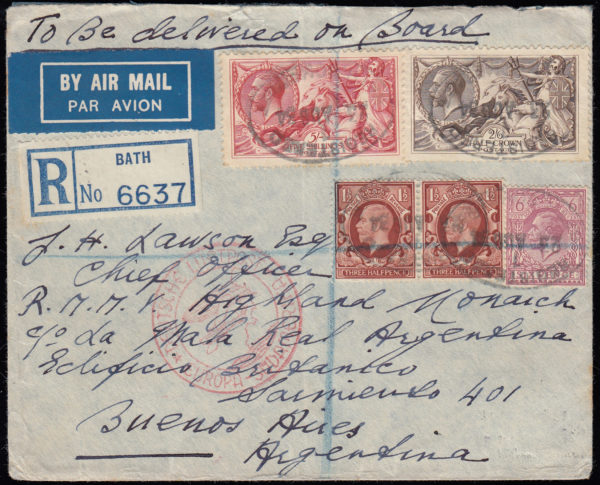 To Be delivered on Board
BY AIR MAIL
PAR AVION
R
BATH
No 6637
5/-
FIVE SHILLINGS
2/6
HALF CROWN
1½ 1½
THREE HALFPENCE
1½ 1½
THREE HALFPENCE
6 6
SIXPENCE
J. H. Lawson Esq
Chief Officer
R.M.M.V Highland Monarch
c/o La Mala Real Argentina
Edificio Britanico
Sarmiento 401
Buenos Aires
Argentina
EUROPA - SÜDAMERIKA